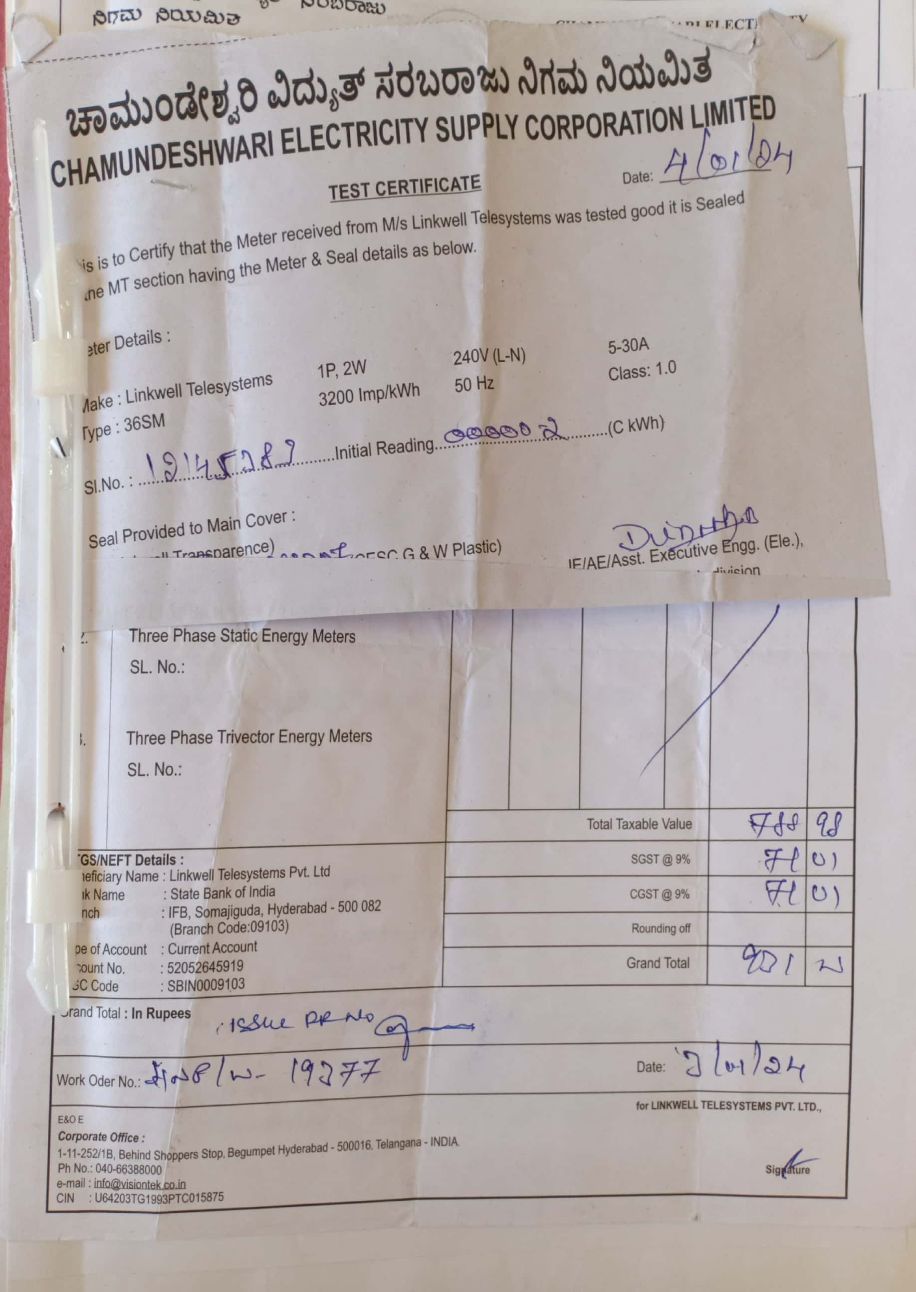 ನಿಗಮ ನಿಯಮಿತ
ಚಾಮುಂಡೇಶ್ವರಿ ವಿದ್ಯುತ್ ಸರಬರಾಜು ನಿಗಮ ನಿಯಮಿತ
CHAMUNDESHWARI ELECTRICITY SUPPLY CORPORATION LIMITED
TEST CERTIFICATE
Date: 4/01/24
is is to Certify that the Meter received from M/s Linkwell Telesystems was tested good it is Sealed
ne MT section having the Meter & Seal details as below.
eter Details :
Make : Linkwell Telesystems 1P, 2W 240V (L-N) 5-30A
Type : 36SM 3200 Imp/kWh 50 Hz Class: 1.0
Sl.No. : 12145289 Initial Reading 000002 (C kWh)
Seal Provided to Main Cover :
Transparence) G & W Plastic)
JE/AE/Asst. Executive Engg. (Ele.),
division
Three Phase Static Energy Meters
SL. No.:
3. Three Phase Trivector Energy Meters
SL. No.:
Total Taxable Value 788 98
SGST @ 9% 71 01
CGST @ 9% 71 01
Rounding off
Grand Total
TGS/NEFT Details :
neficiary Name : Linkwell Telesystems Pvt. Ltd
nk Name : State Bank of India
nch : IFB, Somajiguda, Hyderabad - 500 082
(Branch Code:09103)
pe of Account : Current Account
count No. : 52052645919
SC Code : SBIN0009103
Grand Total : In Rupees
Issue RR No
Work Oder No.: 19377
Date: 3/01/24
for LINKWELL TELESYSTEMS PVT. LTD.,
E&O E
Corporate Office :
1-11-252/1B, Behind Shoppers Stop, Begumpet Hyderabad - 500016, Telangana - INDIA.
Ph No.: 040-66388000
e-mail : info@visiontek.co.in
CIN : U64203TG1993PTC015875
Signature